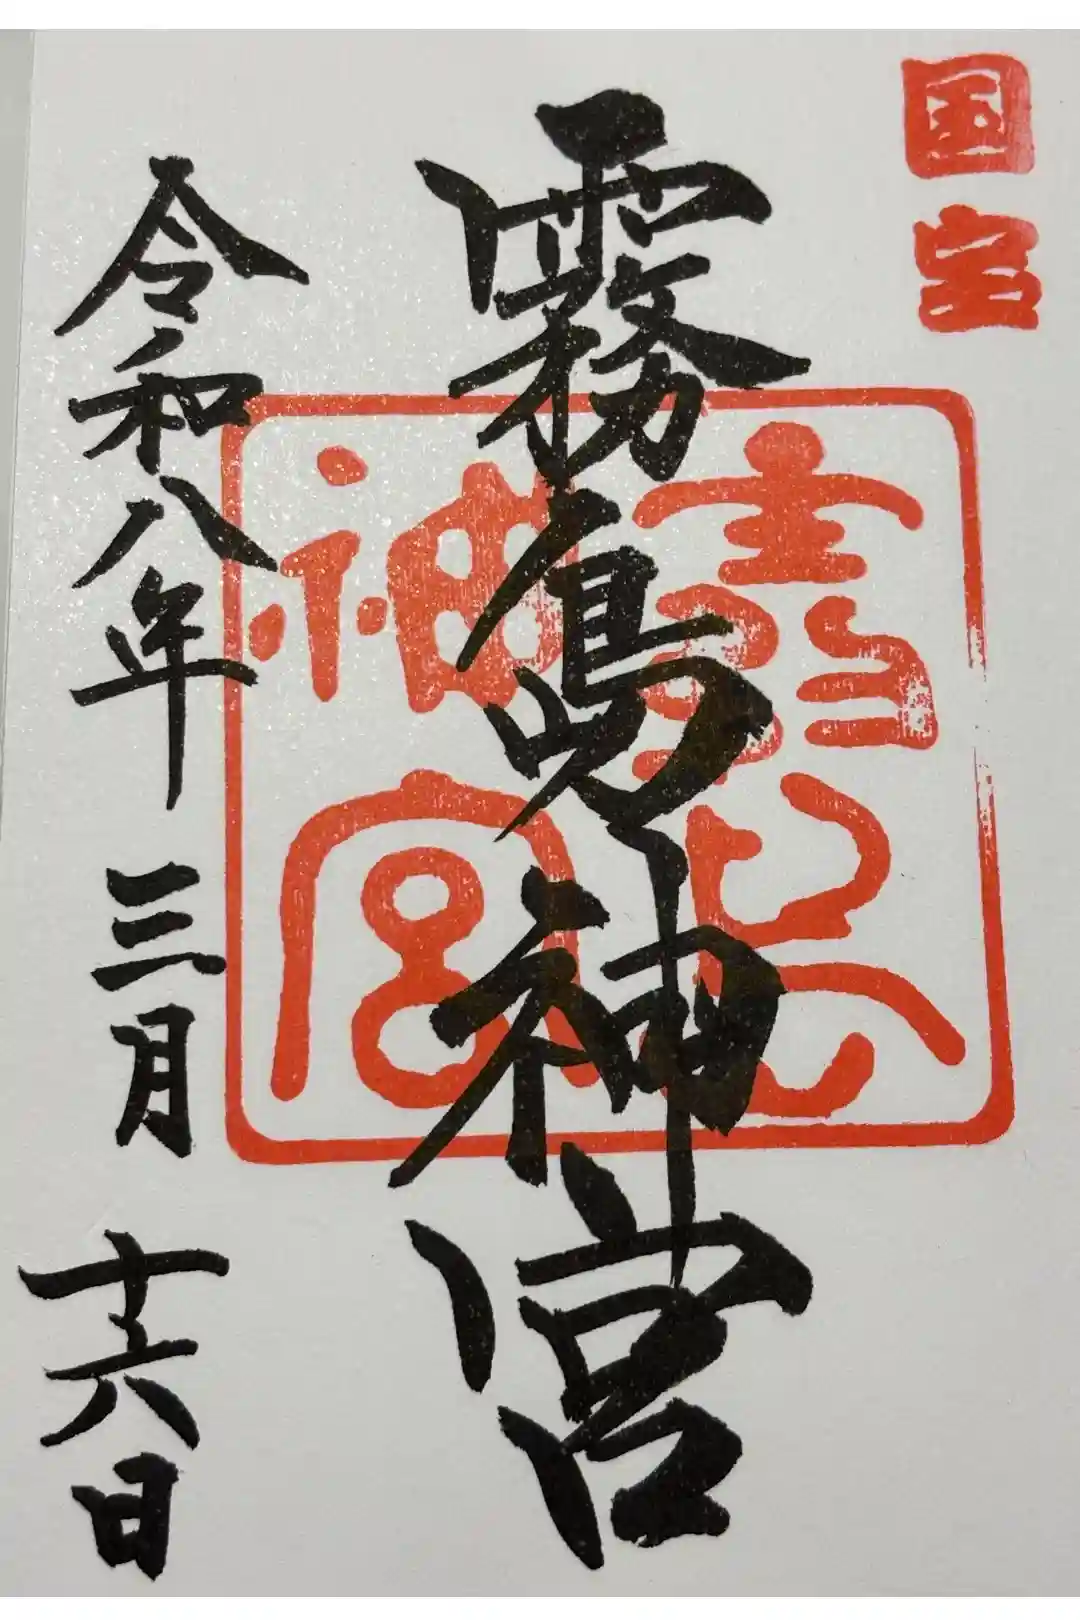 国宝
霧島神宮
霧島神宮
令和八年 三月 十六日